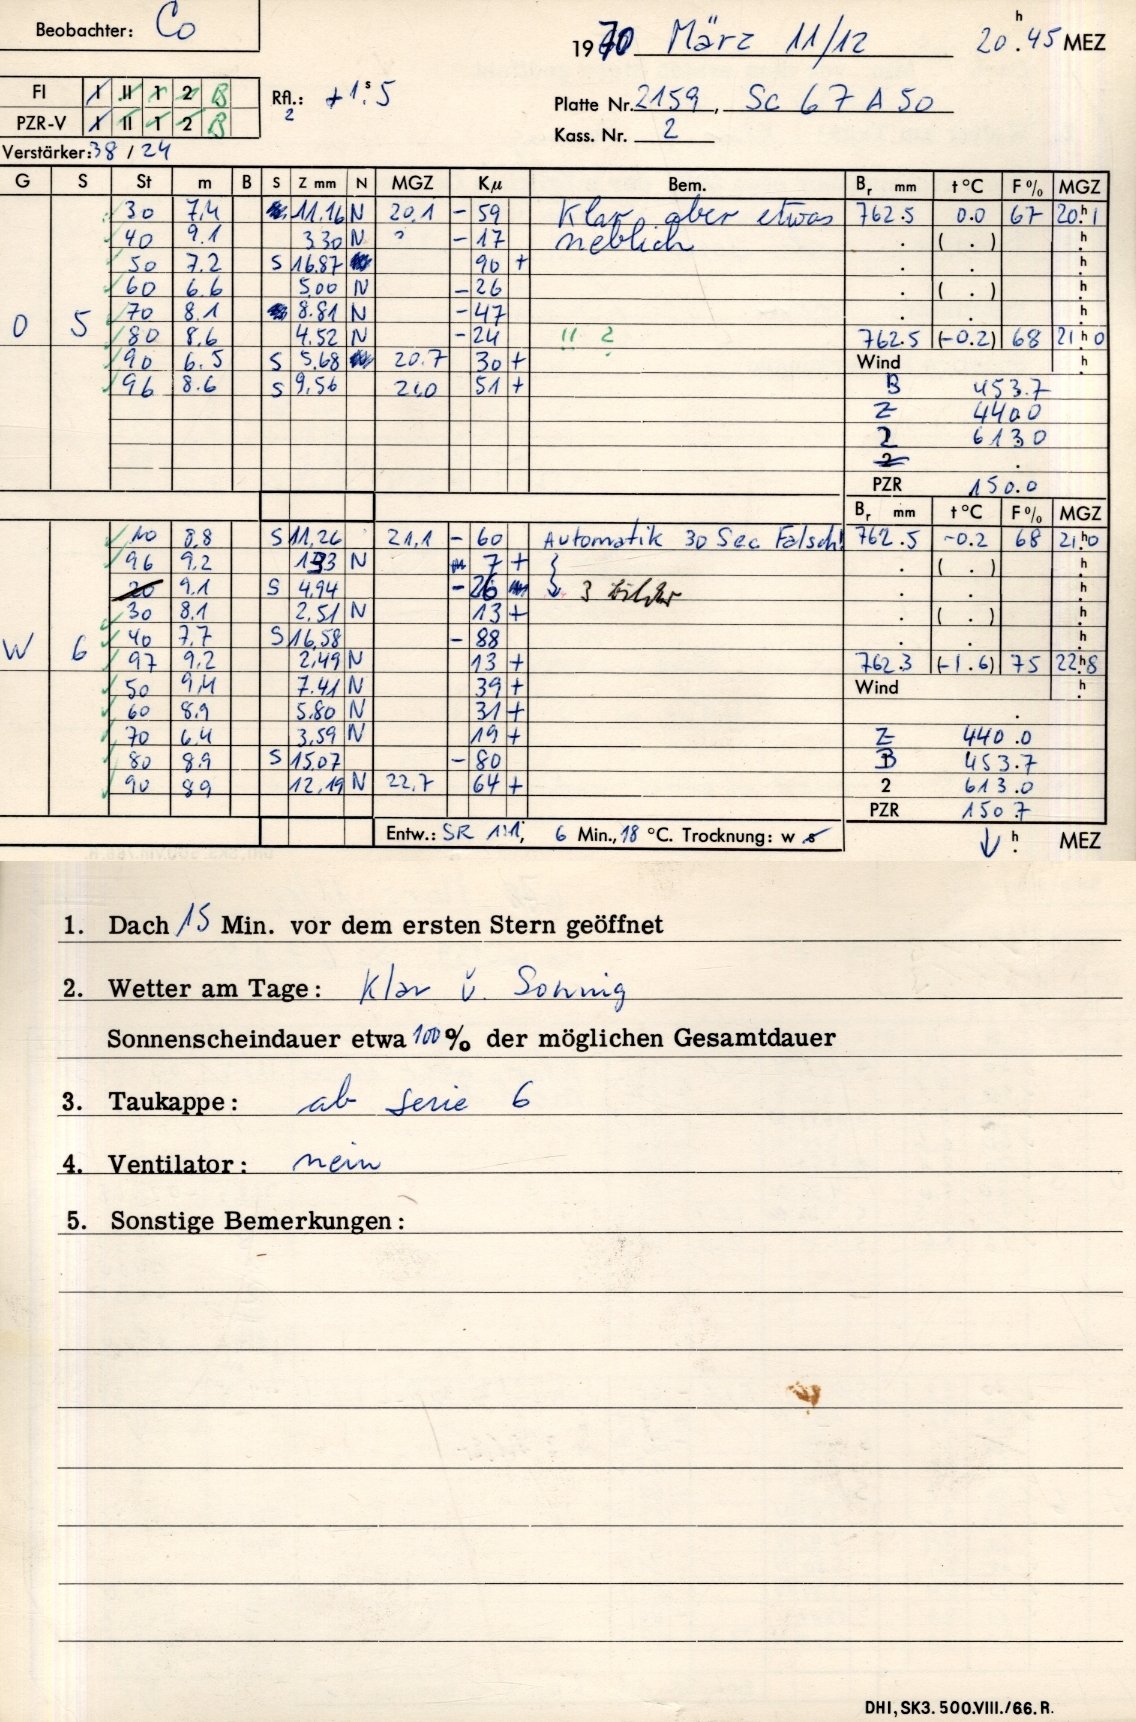 Beobachter: Co
1970 März 11/12 20h.45 MEZ
FI I II 1 2 B
Rfl.: +1s.5
2
Platte Nr. 2159, Sc 67 A 50
PZR-V I II 1 2 B
Kass. Nr. 2
Verstärker: 38 / 24
G S St m B S Z mm N MGZ Kμ Bem. Br mm t °C F % MGZ
30 7,4 11.16 N 20.1 - 59 Klar, aber etwas 762.5 0.0 67 20h.1
40 9.1 3.30 N - 17 neblich . ( . ) h
50 7.2 S 16.87 90 + . . h
60 6.6 5.00 N - 26 . ( . ) h
70 8.1 8.81 N - 47 . . h
O 5 80 8.6 4.52 N - 24 !! ? 762.5 (-0.2) 68 21h0
90 6.5 S 5.68 20.7 30 + Wind h
96 8.6 S 9,56 21.0 51 + B 453.7
Z 440.0
2 613.0
2 .
PZR 150.0
Br mm t °C F % MGZ
10 8.8 S 11,26 21,1 - 60 Automatik 30 Sec Falsch! 762.5 -0.2 68 21h0
96 9.2 1.93 N 7 + . ( . ) h
20 9.1 S 4.94 - 26 3 Bilder . . h
30 8.1 2.51 N 13 + . ( . ) h
W 6 40 7.7 S 16,58 - 88 . . h
97 9.2 2,49 N 13 + 762.3 (-1.6) 75 22h8
50 9,4 7.41 N 39 + Wind h
60 8.9 5.80 N 31 + .
70 6.4 3,59 N 19 + Z 440.0
80 8.9 S 15.07 - 80 B 453.7
90 8.9 12,19 N 22,7 64 + 2 613.0
PZR 150.7
Entw.: SR 1:1; 6 Min., 18 °C. Trocknung: w s h MEZ
1. Dach 15 Min. vor dem ersten Stern geöffnet
2. Wetter am Tage: Klar u. Sonnig
Sonnenscheindauer etwa 100 % der möglichen Gesamtdauer
3. Taukappe: ab Serie 6
4. Ventilator: nein
5. Sonstige Bemerkungen:
DHI, SK3. 500.VIII./66. R.